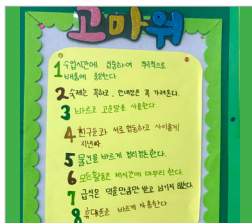 고마워
1 수업시간에 집중하여 적극적으로
배움에 참여한다.
2 숙제는 꼭하고, 안내장은 꼭 가져온다.
3 바르고 고운말을 사용한다.
4 친구들과 서로 협동하고 사이좋게
지낸다.
5 물건을 바르게 정리정돈한다.
6 모든활동은 제시간에 마무리 한다.
7 급식은 먹을만큼만 받고 남기지 않는다.
8 휴대폰은 바르게 사용한다.